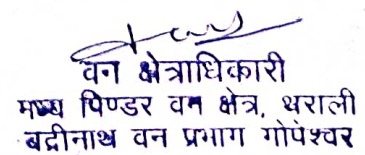 वन क्षेत्राधिकारी
मध्य पिण्डर वन क्षेत्र, थराली
बद्रीनाथ वन प्रभाग गोपेश्वर